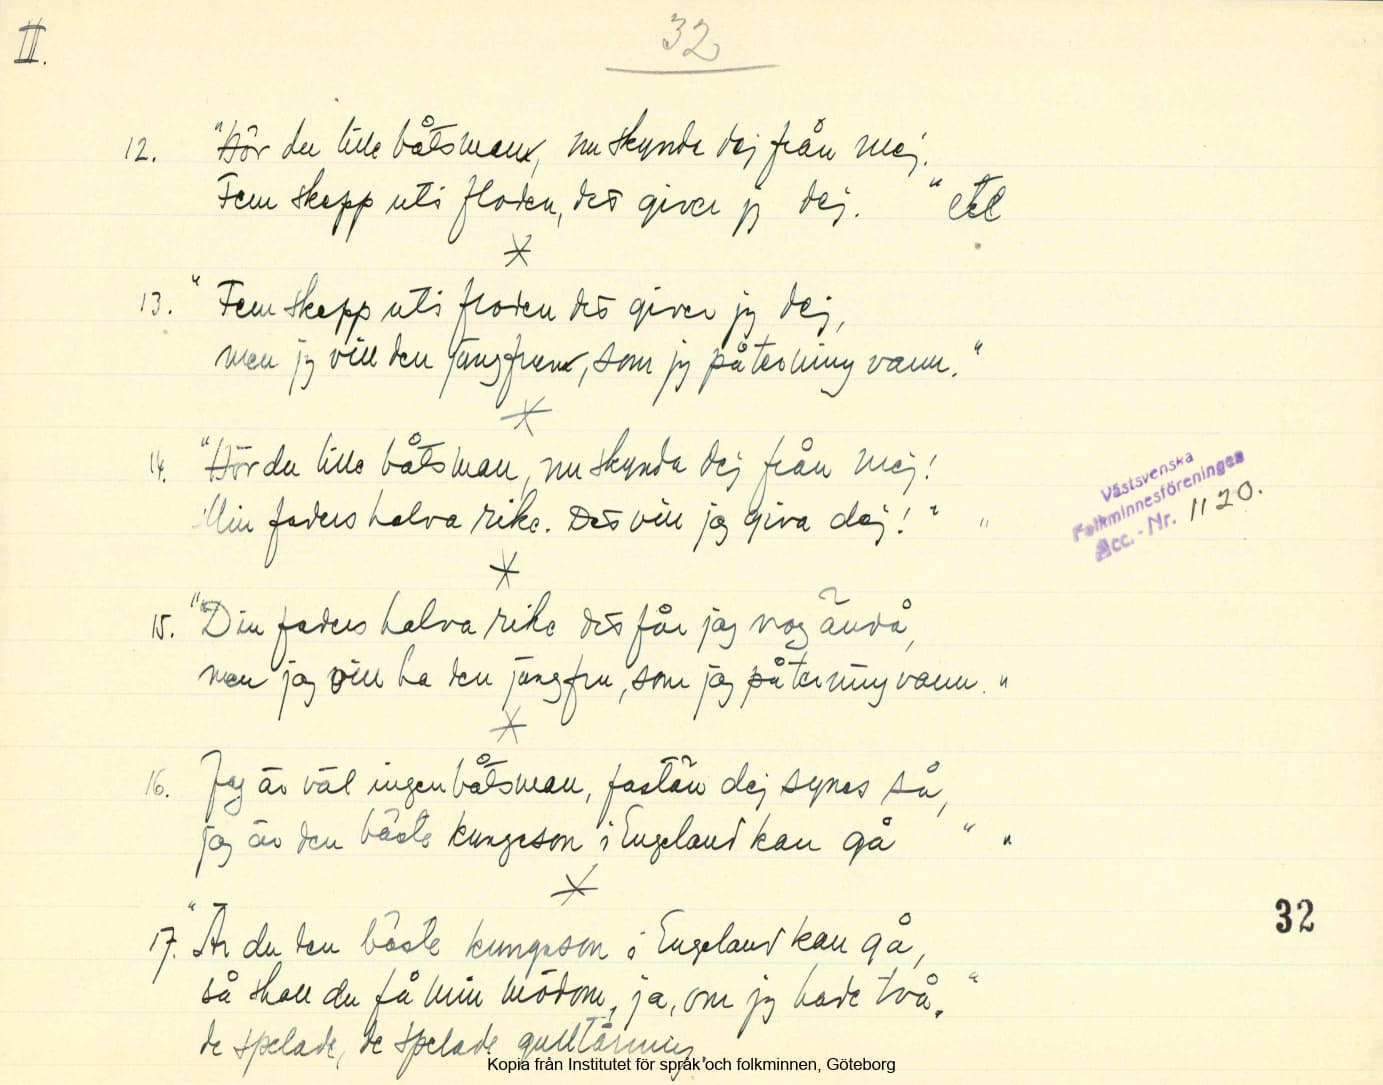 II.
32
12. "Hör du lille båtsman, nu skynda dej från mej.
Fem skepp uti floden, det giver jg dej. " etc
*
13. "Fem skepp uti floden det giver jg dej,
men jg vill den jungfrun, som jg på terning vann."
*
14. "Hör du lille båtsman, nu skynda dej från mej!
Min faders halva rike. Det vill jag giva dej!" "
*
15. "Din faders halva rike det får jag nog ändå,
men jag vill ha den jungfru, som jag på terning vann."
*
16. Jag är väl ingen båtsman, fastän dej synes så,
jag är den bäste kungason i Engeland kan gå " "
*
17. "Är du den bäste kungason i Engeland kan gå,
så skall du få min mödom, ja, om jg hade två."
de spelade, de spelade gulltärning.
Västsvenska
Folkminnesföreningen
Acc. - Nr. 1120.
32
Kopia från Institutet för språk och folkminnen, Göteborg